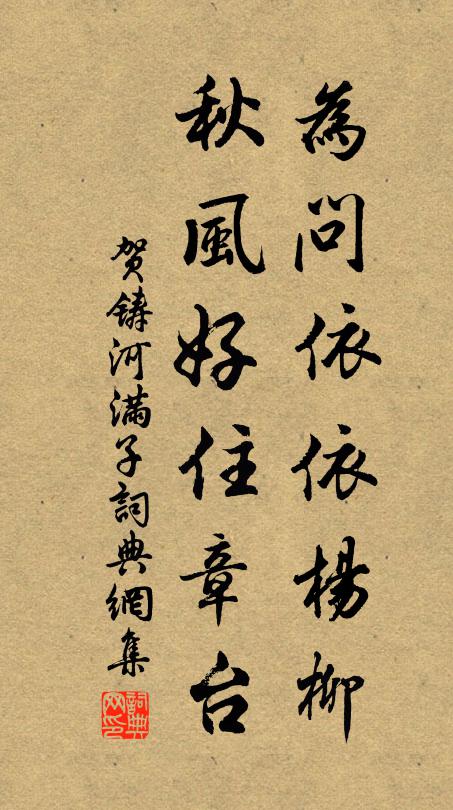 為問依依楊柳
秋風好住章台
贺鑄河滿子詞典網集
詞典网印